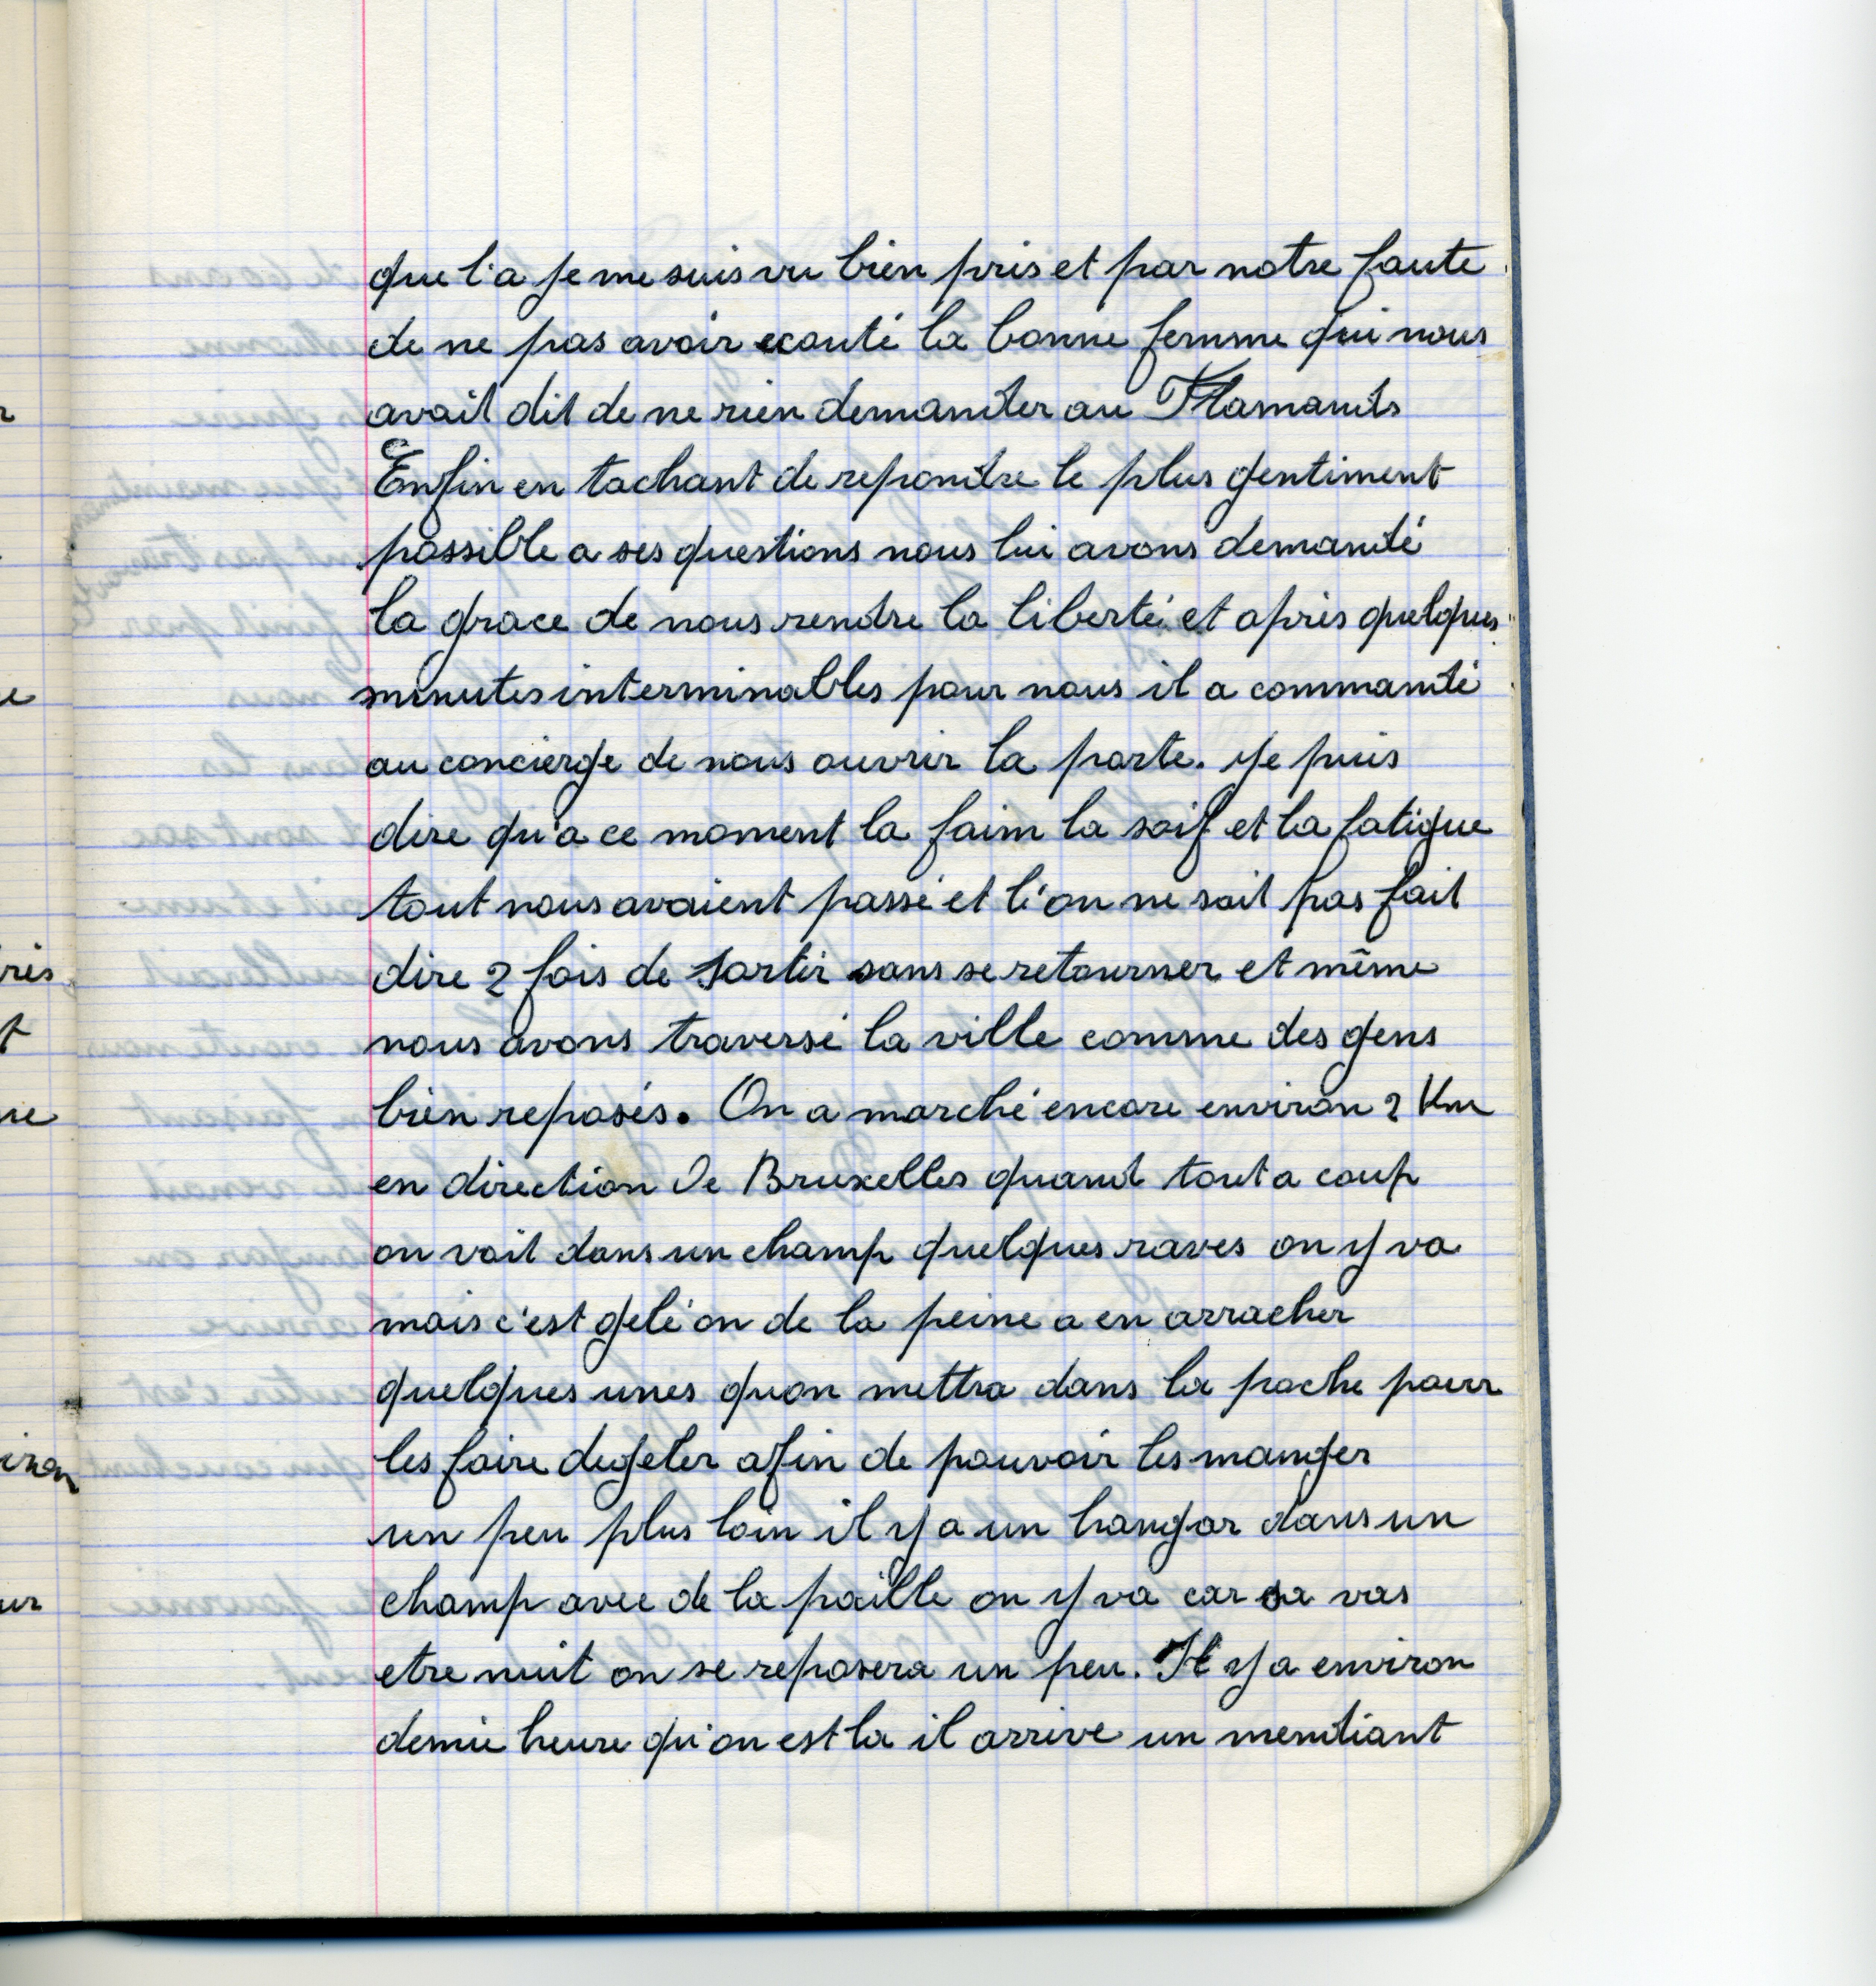 que l'a je me suis vu bien pris et par notre faute
de ne pas avoir ecouté la bonne femme qui nous
avait dit de ne rien demander au Flamands
Enfin en tachant de repondre le plus gentiment
possible a ses questions nous lui avons demandé
la grace de nous rendre la liberté et après quelques
minutes interminables pour nous il a commandé
au concierge de nous ouvrir la porte. Je puis
dire qu'a ce moment la faim la soif et la fatigue
tout nous avaient passé et l'on ne sait pas fait
dire 2 fois de sortir sans se retourner et même
nous avons traversé la ville comme des gens
bien reposés. On a marché encore environ 2 Km
en direction de Bruxelles quand tout a coup
on voit dans un champ quelques raves on y va
mais c'est gelé on de la peine a en arracher
quelques unes quon mettra dans la poche pour
les faire degeler afin de pouvoir les manger
un peu plus loin il y a un hangar dans un
champ avec de la paille on y va car sa vas
etre nuit on se reposera un peu. Il y a environ
demie heure qu'on est la il arrive un mendiant